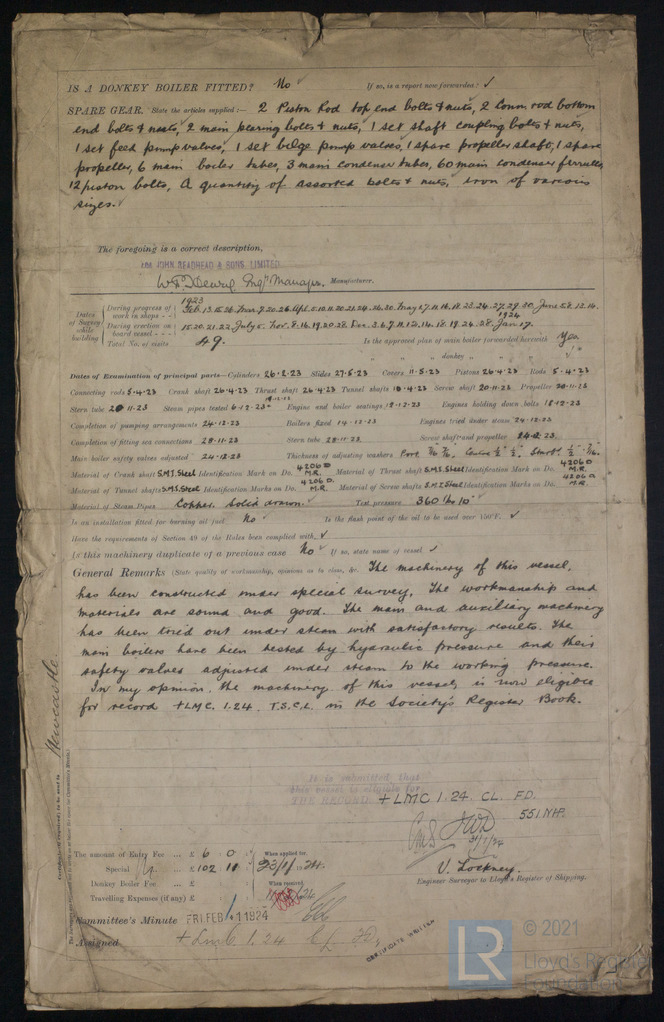 IS A DONKEY BOILER FITTED? No ✓ If so, is a report now forwarded? ✓
SPARE GEAR. State the articles supplied:— 2 Piston Rod top end bolts & nuts, 2 Conn. rod bottom
end bolts & nuts, 2 main bearing bolts & nuts, 1 set shaft coupling bolts & nuts,
1 set feed pump valves, 1 set bilge pump valves, 1 spare propeller shaft, 1 spare
propeller, 6 main boiler tubes, 3 main condenser tubes, 60 main condenser ferrules
12 piston bolts, A quantity of assorted bolts & nuts, iron of various
sizes.
The foregoing is a correct description,
FOR JOHN READHEAD & SONS, LIMITED
Engr Manager. Manufacturer.
1923
Dates of Survey while building
During progress of work in shops - - Feb. 13. 15. 26. Mar. 7. 20. 26. Apl. 5. 10. 11. 20. 21. 24. 26. 30. May 1. 7. 11. 16. 18. 23. 24. 27. 29. 30. June 5. 8. 12. 14.
During erection on board vessel - - - 15. 20. 21. 22. July 5. Nov. 8. 16. 19. 20. 28. Dec. 3. 6. 7. 11. 12. 14. 18. 19. 24. 28. 1924 Jan 17.
Total No. of visits 49. Is the approved plan of main boiler forwarded herewith Yes
" " " donkey " " "
Dates of Examination of principal parts—Cylinders 26.2.23 Slides 27.5.23 Covers 11.5.23 Pistons 26.4.23 Rods 5.4.23
Connecting rods 5.4.23 Crank shaft 26.4.23 Thrust shaft 26.4.23 Tunnel shafts 10.4.23 Screw shaft 20.11.23 Propeller 20.11.23
Stern tube 20.11.23 Steam pipes tested 6.12.23 Engine and boiler seatings 12.12.23 Engines holding down bolts 18.12.23
Completion of pumping arrangements 24.12.23 Boilers fixed 14.12.23 Engines tried under steam 24.12.23
Completion of fitting sea connections 28.11.23 Stern tube 28.11.23 Screw shaft and propeller 24.12.23.
Main boiler safety valves adjusted 24.12.23 Thickness of adjusting washers
Material of Crank shaft S.M.I. Steel Identification Mark on Do. 4206D M.R. Material of Thrust shaft S.M.I. Steel Identification Mark on Do. 4206D M.R.
Material of Tunnel shafts S.M.I. Steel Identification Marks on Do. 4206D. M.R. Material of Screw shafts S.M.I. Steel Identification Marks on Do. 4206D M.R.
Material of Steam Pipes Copper. Solid drawn. Test pressure 360 lbs □"
Is an installation fitted for burning oil fuel No ✓ Is the flash point of the oil to be used over 150°F. ✓
Have the requirements of Section 49 of the Rules been complied with ✓
Is this machinery duplicate of a previous case No ✓ If so, state name of vessel ✓
General Remarks (State quality of workmanship, opinions as to class, &c. The machinery of this vessel,
has been constructed under special survey. The workmanship and
materials are sound and good. The main and auxiliary machinery
has been tried out under steam with satisfactory results. The
main boilers have been tested by hydraulic pressure and their
safety valves adjusted under steam to the working pressure.
In my opinion, the machinery of this vessel, is now eligible
for record +LMC. 1.24. T.S.C.L. in the Society's Register Book.
Newcastle
It is submitted that
this vessel is eligible for
THE RECORD + LMC 1.24. CL. F.D.
551 NHP.
The amount of Entry Fee ... £ 6 : 0 : When applied for,
Special ... £ 102 : 11 : 23/1/1924.
Donkey Boiler Fee ... £ : : When received,
Travelling Expenses (if any) £ : :
Engineer Surveyor to Lloyd's Register of Shipping.
Committee's Minute FRI. FEB 1 1924
Assigned + LMC. 1.24 CL FD.
CERTIFICATE WRITTEN
LR © 2021
Lloyd's Register
Foundation